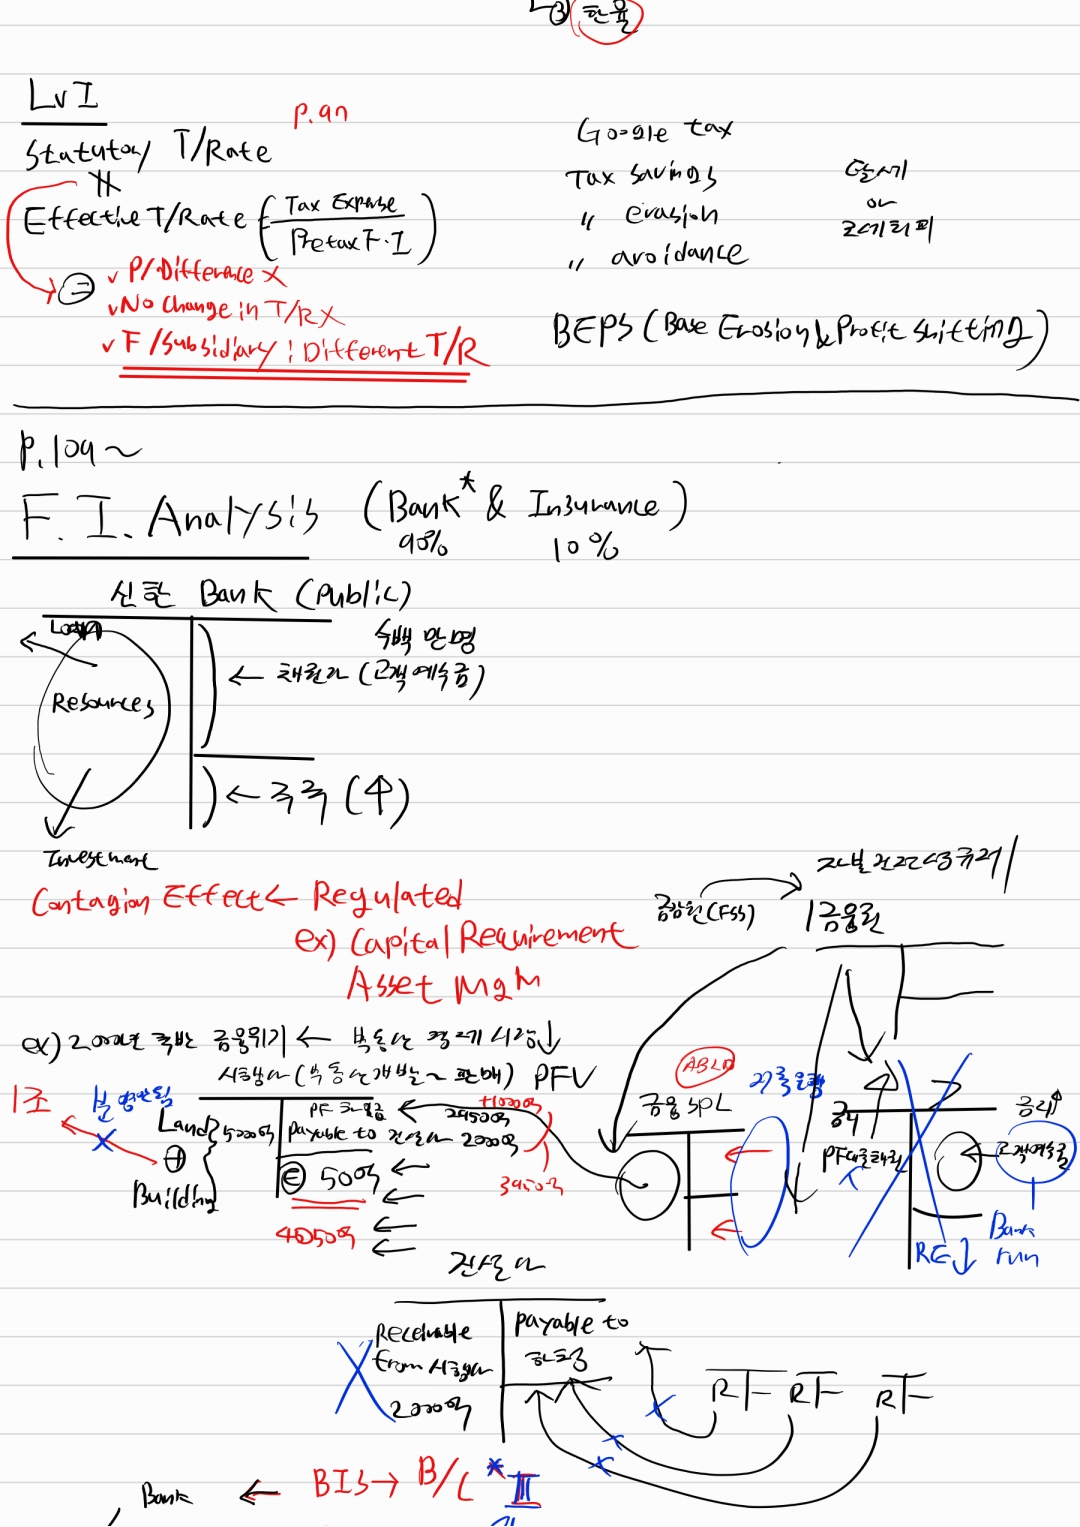 ③ 환율
Lv I
p.97
Statutory T/Rate
Effective T/Rate (Tax Expense / Pretax F.I)
= ✓ P/Difference X
✓ No Change in T/R X
✓ F/Subsidiary : Different T/R
Google tax
Tax Savings 탈세
" evasion or
" avoidance 조세회피
BEPS (Base Erosion & Profit Shifting)
p.109~
F.I. Analysis (Bank* & Insurance)
90% 10%
신한 Bank (Public)
Loan
수백 만명
← 채권자 (고객예수금)
Resources
← 주주 (小)
Investment
Contagion Effect ← Regulated
ex) Capital Requirement
Asset MgM
자본건전성규제
금감원(FSS)
1금융권
ex) 2000년 후반 금융위기 ← 부동산 경제 시장↓
시행사 (부동산개발~판매) PFV
1조
분양안됨
Land 5000억
⊕
Building
PF차입금 2950억 +1000억
payable to 건설사 2000억
3950억
Ⓔ 50억
4050억
ABLD
금융 SPC
저축은행
금리
PF대출채권
금리↑
고객예수금
RE↓
Bank run
건설사
Receivable from 시행사 2000억
payable to 하청
Bank ← BIS → B/C * III